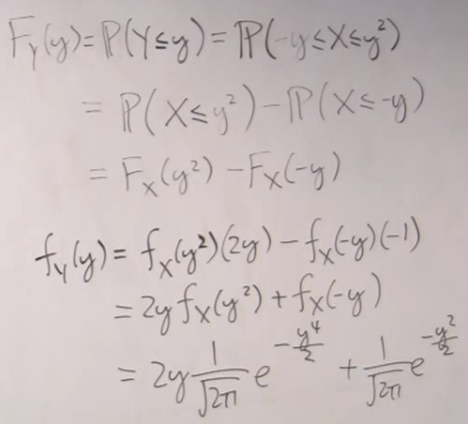 F_Y(y) = ℙ(Y ≤ y) = ℙ(-y ≤ X ≤ y²)
= ℙ(X ≤ y²) - ℙ(X ≤ -y)
= F_X(y²) - F_X(-y)
f_Y(y) = f_X(y²)(2y) - f_X(-y)(-1)
= 2y f_X(y²) + f_X(-y)
= 2y \frac{1}{\sqrt{2π}} e^{-\frac{y^4}{2}} + \frac{1}{\sqrt{2π}} e^{-\frac{y^2}{2}}